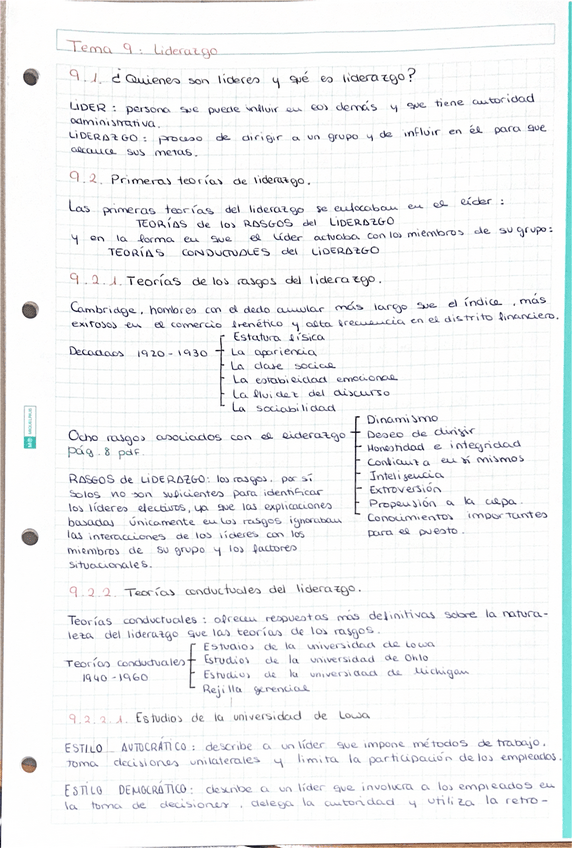 Tema 9: Liderazgo
9.1. ¿Quienes son lideres y qué es liderazgo?
LIDER: persona que puede influir en los demás y que tiene autoridad
administrativa.
LIDERAZGO: proceso de dirigir a un grupo y de influir en él para que
alcance sus metas.
9.2. Primeras teorías de liderazgo.
Las primeras teorías del liderazgo se enfocaban en el líder:
TEORÍAS de los RASGOS del LIDERAZGO
y en la forma en que el líder actuaba con los miembros de su grupo:
TEORÍAS CONDUCTUALES del LIDERAZGO
9.2.1. Teorías de los rasgos del liderazgo.
Cambridge, hombres con el dedo anular más largo que el índice, más
exitosos en el comercio frenético y alta frecuencia en el distrito financiero.
Decadaas 1920-1930
Estatura física
La apariencia
La clase social
La estabilidad emocional
La fluidez del discurso
La sociabilidad
Ocho rasgos asociados con el liderazgo
pág. 8 pdf.
Dinamismo
Deseo de dirigir
Honestidad e integridad
Confianza en sí mismos
Inteligencia
Extroversión
Propensión a la culpa.
Conocimientos importantes
para el puesto.
RASGOS de LIDERAZGO: los rasgos, por sí
solos no son suficientes para identificar
los líderes efectivos, ya que las explicaciones
basadas únicamente en los rasgos ignoraban
las interacciones de los líderes con los
miembros de su grupo y los factores
situacionales.
9.2.2. Teorías conductuales del liderazgo.
Teorías conductuales: ofrecen respuestas más definitivas sobre la natura-
leza del liderazgo que las teorías de los rasgos.
Teorías conductuales
1940-1960
Estudios de la universidad de Iowa
Estudios de la universidad de Ohio
Estudios de la universidad de Michigan
Rejilla gerencial
9.2.2.1. Estudios de la universidad de Iowa
ESTILO AUTOCRÁTICO: describe a un líder que impone métodos de trabajo,
toma decisiones unilaterales y limita la participación de los empleados.
ESTILO DEMOCRÁTICO: describe a un líder que involucra a los empleados en
la toma de decisiones, delega la autoridad y utiliza la retro-